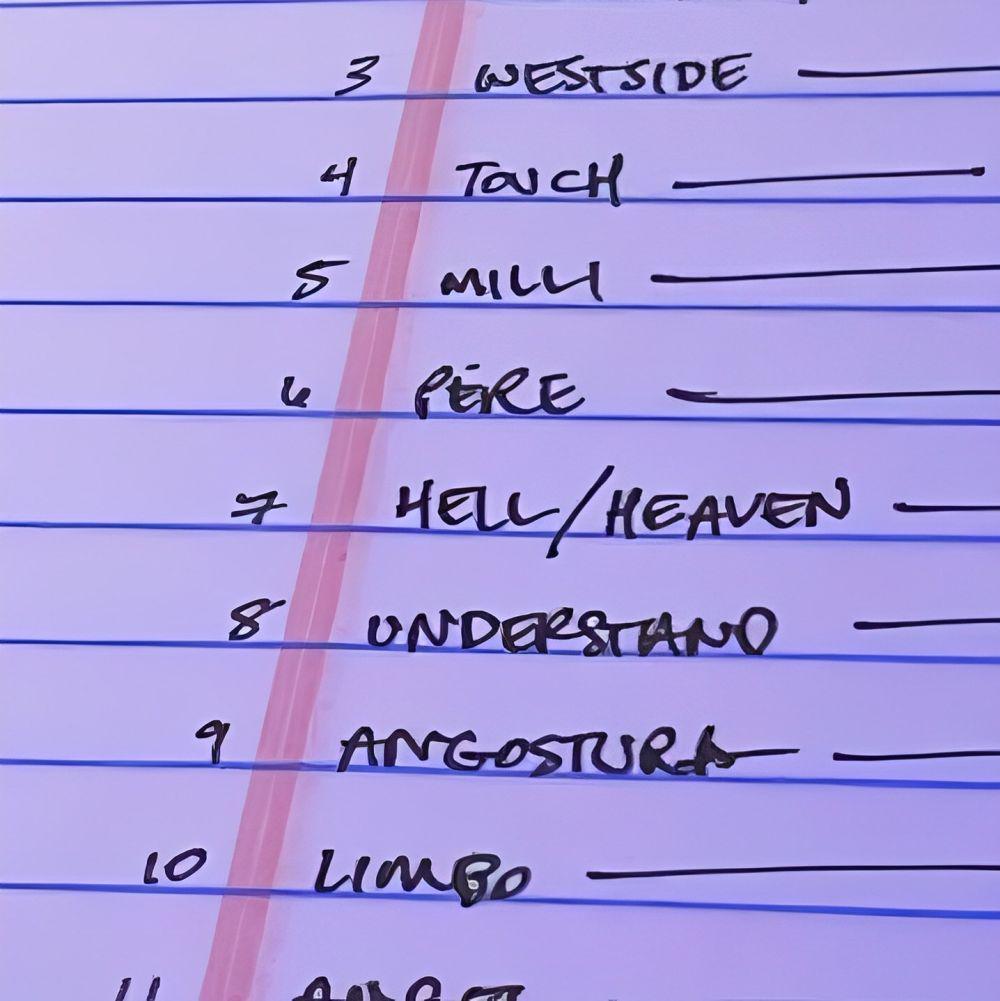 3 WESTSIDE
4 TOUCH
5 MILLI
6 PÈRE
7 HELL/HEAVEN
8 UNDERSTAND
9 ANGOSTURA
10 LIMBO
11